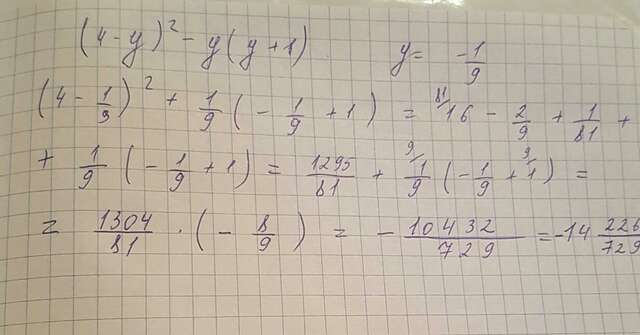 (4-y)² - y(y+1)   y = -1/9
(4 - 1/9)² + 1/9 (- 1/9 + 1) = 81/ 16 - 2/9 + 1/81 +
+ 1/9 (- 1/9 + 1) = 1295/81 + 9/ 1/9 (- 1/9 + 9/ 1) =
= 1304/81 · (- 8/9) = - 10432/729 = -14 226/729